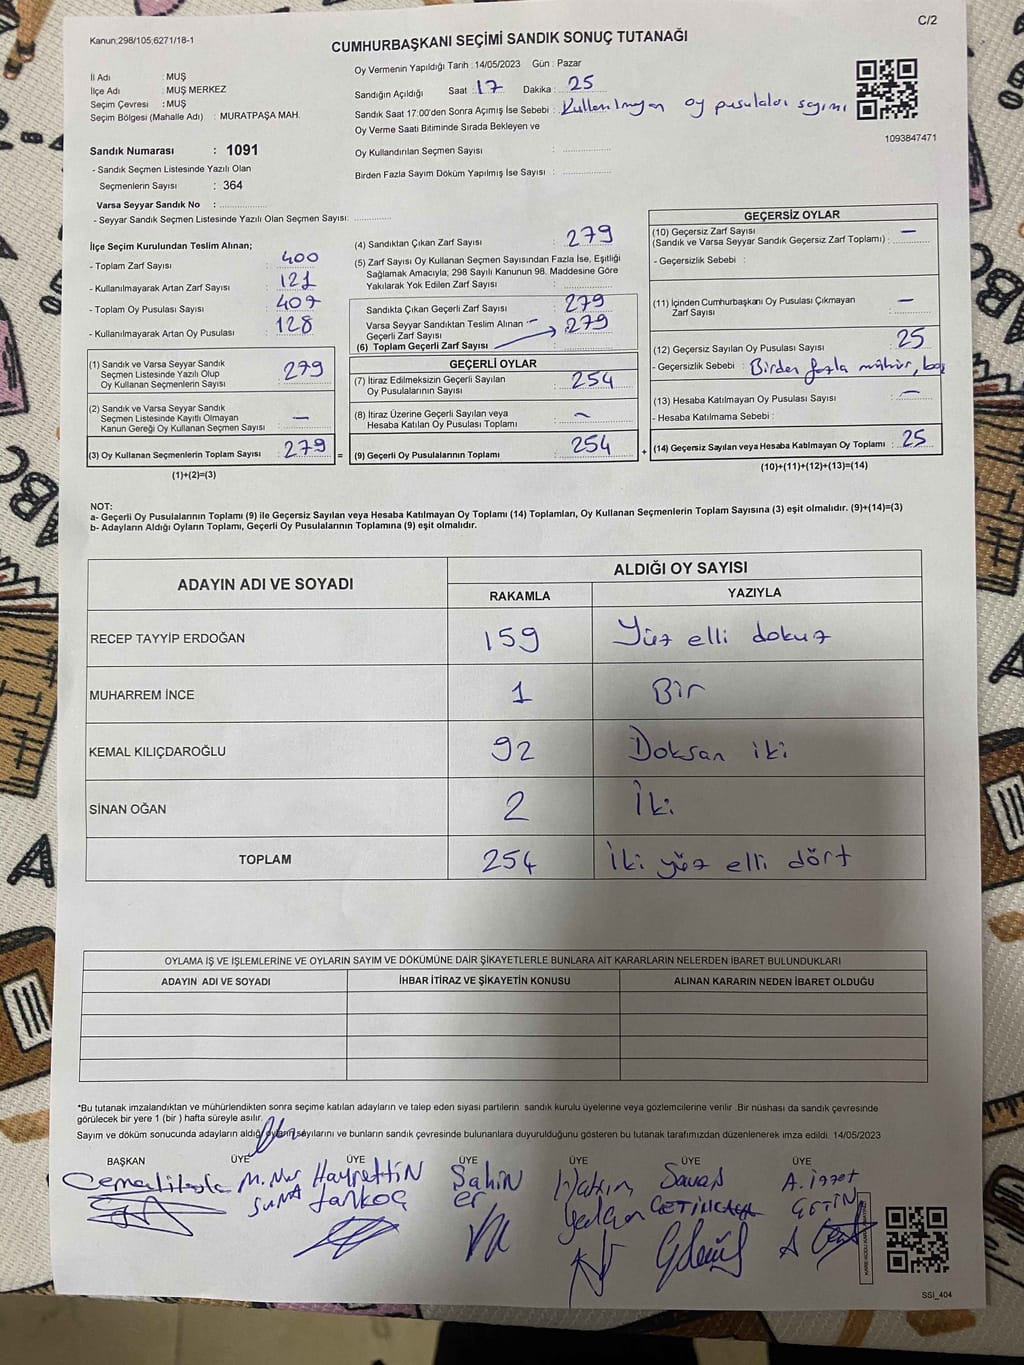 C/2
Kanun;298/105;6271/18-1
CUMHURBAŞKANI SEÇİMİ SANDIK SONUÇ TUTANAĞI
İl Adı : MUŞ
İlçe Adı : MUŞ MERKEZ
Seçim Çevresi : MUŞ
Seçim Bölgesi (Mahalle Adı) : MURATPAŞA MAH.
Oy Vermenin Yapıldığı Tarih : 14/05/2023 Gün : Pazar
Sandığın Açıldığı Saat : 17 Dakika : 25
Sandık Saat 17:00'den Sonra Açımış İse Sebebi : Kullanılmayan oy pusulaları sayımı
Oy Verme Saati Bitiminde Sırada Bekleyen ve
Oy Kullandırılan Seçmen Sayısı :
Birden Fazla Sayım Döküm Yapılmış İse Sayısı :
1093847471
Sandık Numarası : 1091
- Sandık Seçmen Listesinde Yazılı Olan
Seçmenlerin Sayısı : 364
Varsa Seyyar Sandık No :
- Seyyar Sandık Seçmen Listesinde Yazılı Olan Seçmen Sayısı:
İlçe Seçim Kurulundan Teslim Alınan;
- Toplam Zarf Sayısı : 400
- Kullanılmayarak Artan Zarf Sayısı : 121
- Toplam Oy Pusulası Sayısı : 407
- Kullanılmayarak Artan Oy Pusulası : 128
(1) Sandık ve Varsa Seyyar Sandık
Seçmen Listesinde Yazılı Olup
Oy Kullanan Seçmenlerin Sayısı : 279
(2) Sandık ve Varsa Seyyar Sandık
Seçmen Listesinde Kayıtlı Olmayan
Kanun Gereği Oy Kullanan Seçmen Sayısı : —
(3) Oy Kullanan Seçmenlerin Toplam Sayısı : 279
(1)+(2)=(3)
=
(4) Sandıktan Çıkan Zarf Sayısı : 279
(5) Zarf Sayısı Oy Kullanan Seçmen Sayısından Fazla İse, Eşitliği
Sağlamak Amacıyla; 298 Sayılı Kanunun 98. Maddesine Göre
Yakılarak Yok Edilen Zarf Sayısı :
Sandıkta Çıkan Geçerli Zarf Sayısı : 279
Varsa Seyyar Sandıktan Teslim Alınan : —
Geçerli Zarf Sayısı
(6) Toplam Geçerli Zarf Sayısı : 279
GEÇERLİ OYLAR
(7) İtiraz Edilmeksizin Geçerli Sayılan
Oy Pusulalarının Sayısı : 254
(8) İtiraz Üzerine Geçerli Sayılan veya
Hesaba Katılan Oy Pusulası Toplamı : —
(9) Geçerli Oy Pusulalarının Toplamı : 254
+
GEÇERSİZ OYLAR
(10) Geçersiz Zarf Sayısı
(Sandık ve Varsa Seyyar Sandık Geçersiz Zarf Toplamı) : —
- Geçersizlik Sebebi :
(11) İçinden Cumhurbaşkanı Oy Pusulası Çıkmayan
Zarf Sayısı : —
(12) Geçersiz Sayılan Oy Pusulası Sayısı : 25
- Geçersizlik Sebebi : Birden fazla mühür, boş
(13) Hesaba Katılmayan Oy Pusulası Sayısı : —
- Hesaba Katılmama Sebebi :
(14) Geçersiz Sayılan veya Hesaba Katılmayan Oy Toplamı : 25
(10)+(11)+(12)+(13)=(14)
NOT:
a- Geçerli Oy Pusulalarının Toplamı (9) ile Geçersiz Sayılan veya Hesaba Katılmayan Oy Toplamı (14) Toplamları, Oy Kullanan Seçmenlerin Toplam Sayısına (3) eşit olmalıdır. (9)+(14)=(3)
b- Adayların Aldığı Oyların Toplamı, Geçerli Oy Pusulalarının Toplamına (9) eşit olmalıdır.
ADAYIN ADI VE SOYADI
ALDIĞI OY SAYISI
RAKAMLA YAZIYLA
RECEP TAYYİP ERDOĞAN 159 Yüz elli dokuz
MUHARREM İNCE 1 Bir
KEMAL KILIÇDAROĞLU 92 Doksan iki
SİNAN OĞAN 2 İki
TOPLAM 254 İki yüz elli dört
OYLAMA İŞ VE İŞLEMLERİNE VE OYLARIN SAYIM VE DÖKÜMÜNE DAİR ŞİKAYETLERLE BUNLARA AİT KARARLARIN NELERDEN İBARET BULUNDUKLARI
ADAYIN ADI VE SOYADI İHBAR İTİRAZ VE ŞİKAYETİN KONUSU ALINAN KARARIN NEDEN İBARET OLDUĞU
*Bu tutanak imzalandıktan ve mühürlendikten sonra seçime katılan adayların ve talep eden siyasi partilerin sandık kurulu üyelerine veya gözlemcilerine verilir .Bir nüshası da sandık çevresinde
görülecek bir yere 1 (bir ) hafta süreyle asılır.
Sayım ve döküm sonucunda adayların aldığı oyların sayılarını ve bunların sandık çevresinde bulunanlara duyurulduğunu gösteren bu tutanak tarafımızdan düzenlenerek imza edildi. 14/05/2023
BAŞKAN ÜYE ÜYE ÜYE ÜYE ÜYE
M. Nur Hayrettin Şahin Hakim Savaş A. İzzet
SUNA Tankoç er Yalçın ÇETİNKAYA ÇETİN
SSİ_404